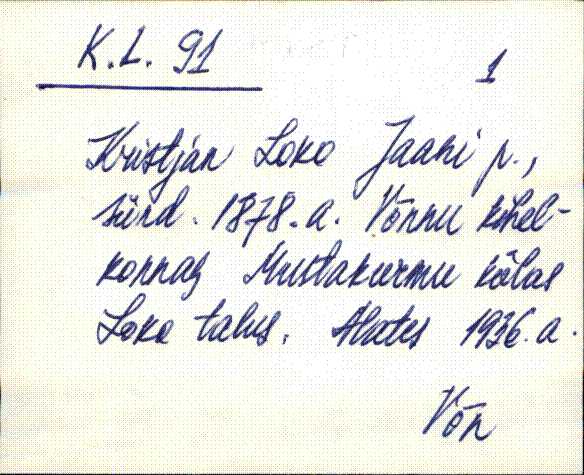 K.L. 91
1
Kristjan Loko Jaani p.,
sünd. 1878. a. Võnnu kihel-
konnas Mustakurmu külas
Loko talus. Alates 1936. a.
Võn